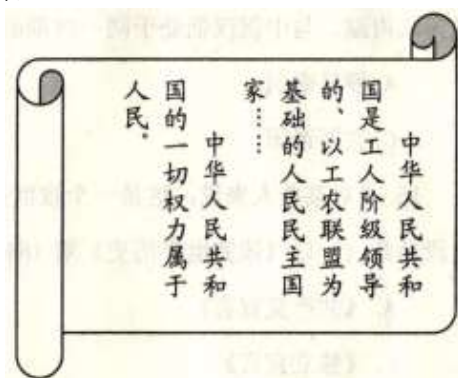 中华人民共和
国是工人阶级领导
的、以工农联盟为
基础的人民民主国
家……
中华人民共和
国的一切权力属于
人民。